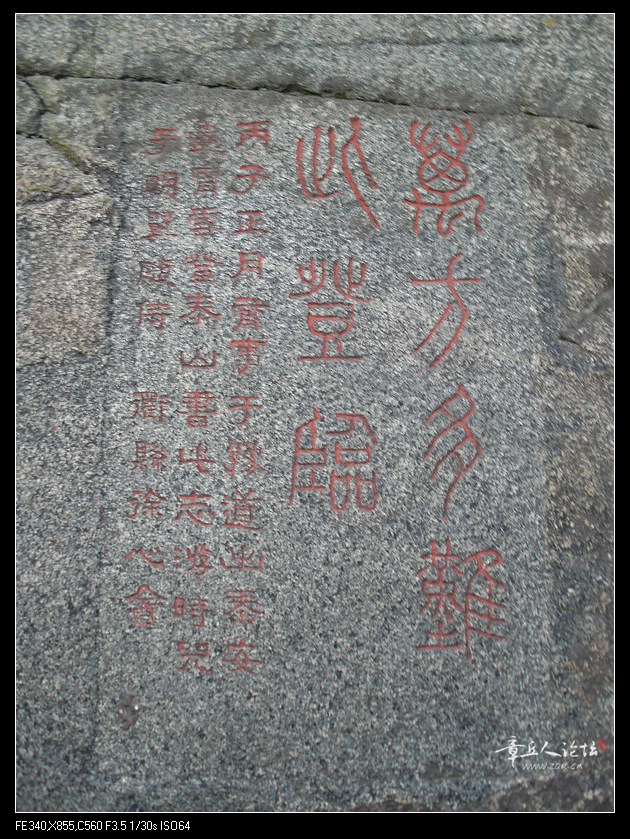 萬方多難
此登臨
丙子正月事于道出泰安
登泰山書此志游時
子明侍 衢縣徐心
章丘人论坛
www.ZQR.cn
FE340,X855,C560 F3.5 1/30s ISO64